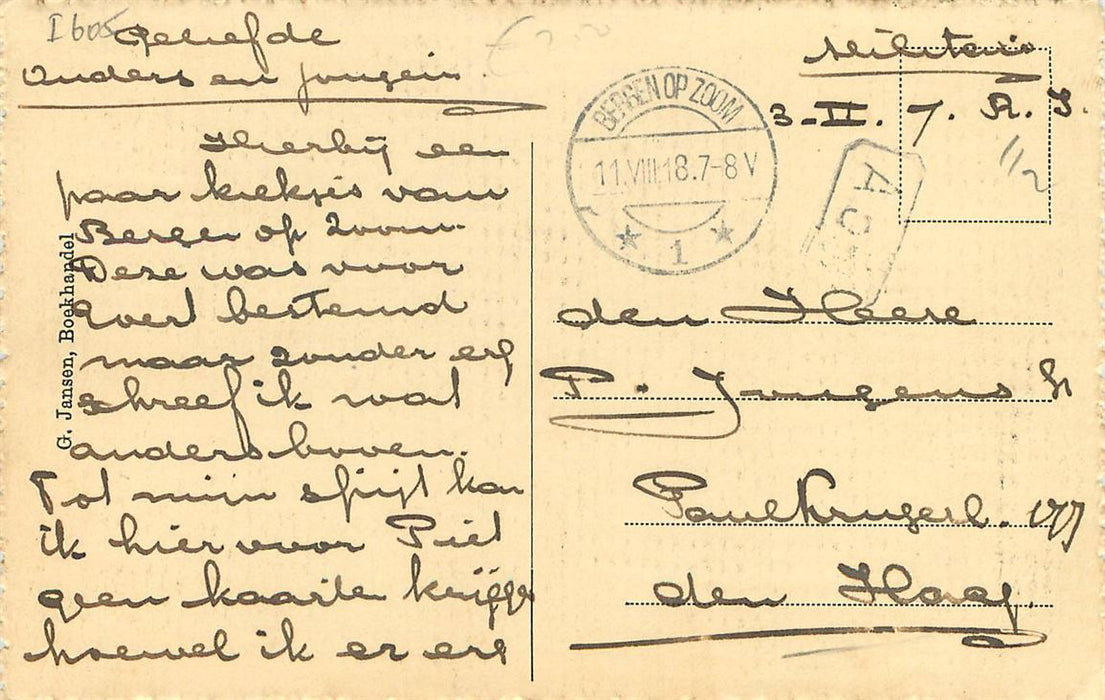 I 605
Geliefde
Ouders en Jongein
Hierbij een
paar kiekjes van
Bergen op Zoom.
Deze was voor
Evert bestemd
maar zonder erg
schreef ik wat
anders boven.
Tot mijn spijt kon
ik hier voor Piet
geen kaarten krijgen
hoewel ik er erg
G. Jansen, Boekhandel
Militair
3-II. 7. R. I.
BERGEN OP ZOOM
11.VIII.18.7-8V
1
den Heere
P. Jurgens
Paul Krugerl. 177
den Haag.